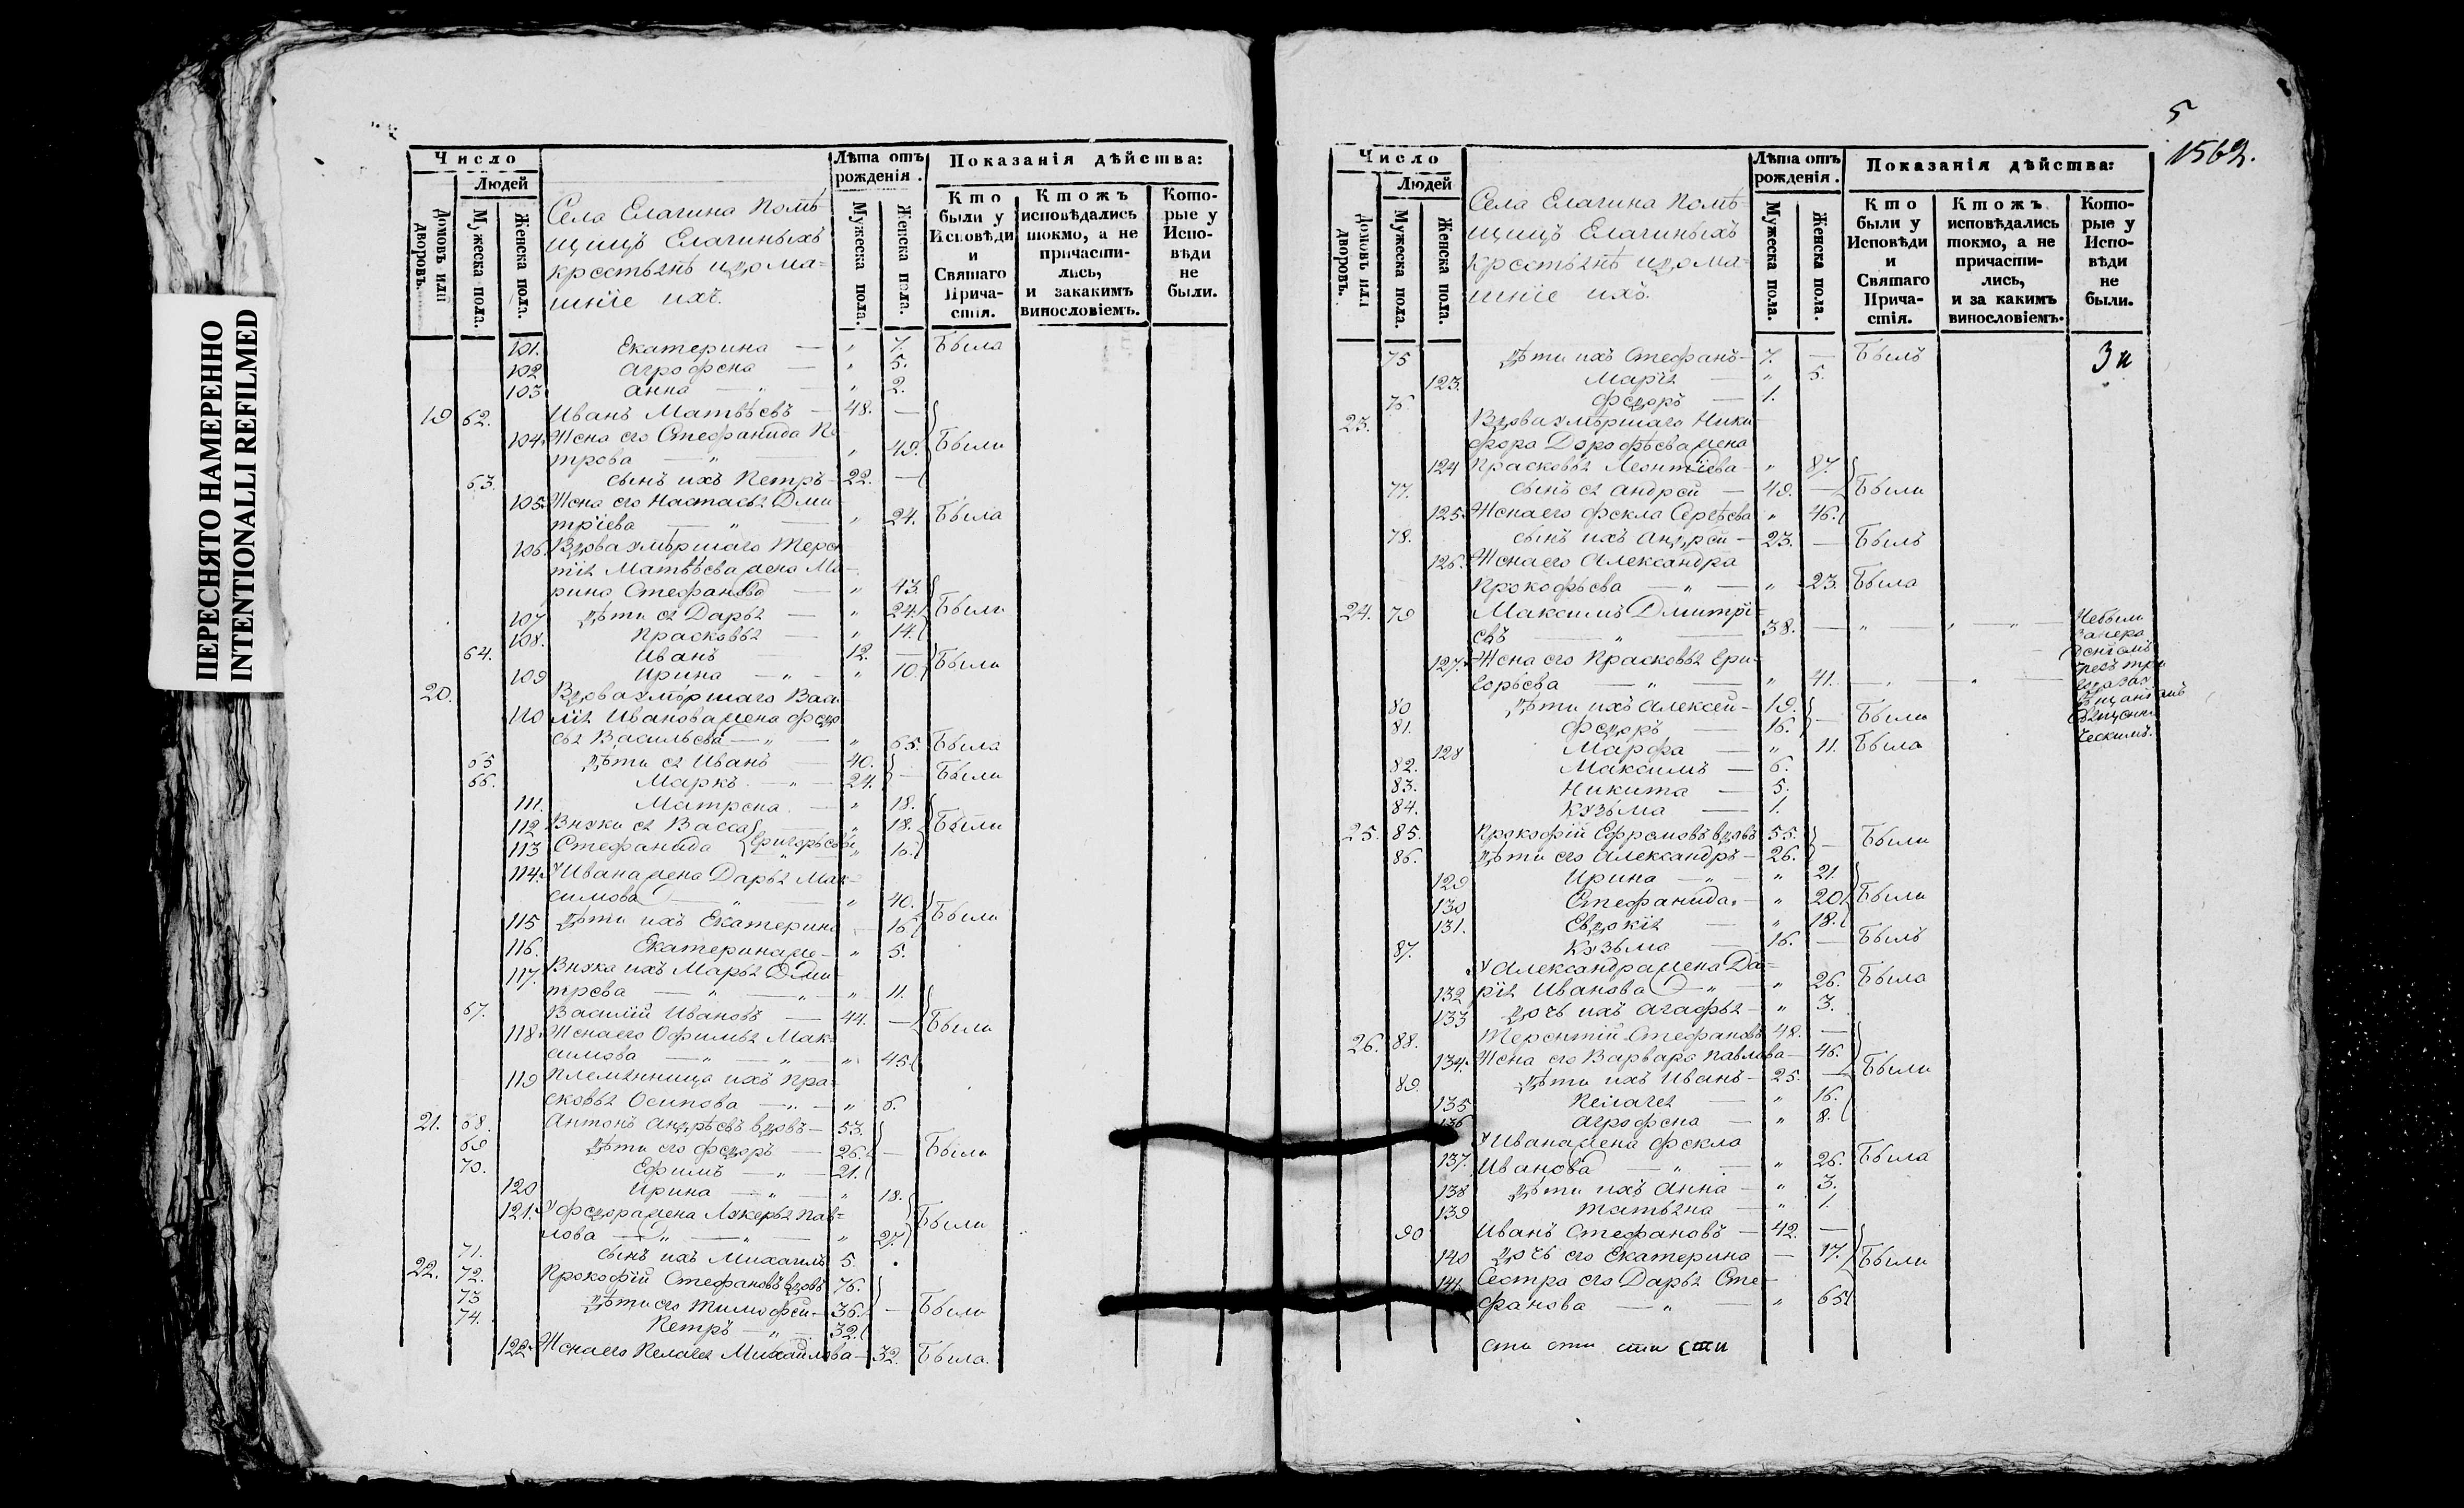 ПЕРЕСНЯТО НАМЕРЕННО
INTENTIONALLI REFILMED
Число
Людей
Домовъ или дворовъ.
Мужеска пола.
Женска пола.
Села Елагина Помѣ-
щицъ Елагиныхъ
крестьянѣ и дома=
шніе ихъ.
Лѣта отъ рожденія.
Мужеска пола.
Женска пола.
Показанія дѣйства:
Кто были у Исповѣди и Святаго Прича-стія.
Ктожъ исповѣдались токмо, а не причасти-лись, и закакимъ винословіемъ.
Кото-рые у Испо-вѣди не были.
101. Екатерина — „ 7. Была
102 Агрофена — „ 5.
103 Анна — „ — „ 2.
19 62. Иванъ Матвѣевъ — 48. —
104. Жена его Стефанида Пе
трова — „ — „ 49. Были
63. сынъ ихъ Петръ — 22. —
105. Жена его Настасья Дми
тріева — „ — „ 24. Была
106. Вдова умѣршаго Терен
тія Матвѣева жена Ма-
рина Стефанова — „ 43.
107 дѣти ея Дарья — „ 24. Были
108. Прасковья — „ 14.
64. Иванъ 12. —
109 Ирина — „ — „ 10. Были
20. Вдова умѣршаго Васи
110 лія Иванова жена Федо
сья Васильева — „ — „ 65. Была
65 дѣти ея Иванъ — 40.
66. Маркъ — „ — 24. — Были
111. Матрена — „ 18.
112 Внуки ея Васса — „ 18. Были
113 Стефанида Григорьевы „ 16.
114. У Ивана жена Дарья Мак=
симова — „ — „ 40.
115 дѣти ихъ Екатерина — 16 Были
116. Екатерина же — „ 5.
117. Внука ихъ Марья Дми-
трева — „ — „ — „ 11.
67. Василій Ивановъ — 44. — Были
118. Жена его Офимья Мак=
симова — „ — „ — „ 45.
119 Племянница ихъ Пра=
сковья Осипова — „ — „ 6.
21. 68. Антонъ Андрѣевъ вдовъ — 53.
69 дѣти его Федоръ — 26. — Были
70. Ефимъ — „ — 21.
120 Ирина — „ — „ 18.
121. У Федора жена Лукерья Пав=
лова — „ — „ — „ 27. Были
71. сынъ ихъ Михаилъ 5.
22. 72. Прокофій Стефановъ вдовъ 76.
73 дѣти его Тимофей — 36. — Были
74. Петръ — „ — 32.
122. Жена его Пелагея Михайлова — 32. Была.
5
1562.
Число
Людей
Домовъ или дворовъ.
Мужеска пола.
Женска пола.
Села Елагина Помѣ-
щицъ Елагиныхъ
Крестьянѣ и дома=
шніе ихъ.
Лѣта отъ рожденія.
Мужеска пола.
Женска пола.
Показанія дѣйства:
Кто были у Исповѣди и Святаго Прича-стія.
Ктожъ исповѣдались токмо, а не причасти-лись, и за какимъ винословіемъ.
Кото-рые у Испо-вѣди не были.
75 дѣти ихъ Стефанъ — 7. — Былъ
123. Марія — „ 5.
76 Федоръ — 1.
23. Вдова умѣршаго Ники
фора Дорофѣева жена
124 Прасковья Леонтіева — „ 87.
77. сынъ ея Андрей — 49. — Были
125. Жена его Фекла Сергѣева „ 46.
78. сынъ ихъ Андрей — 23. — Былъ
126. Жена его Александра
Прокофьева — „ — „ 23. Была
24. 79 Максимъ Дмитрі=
евъ — „ — 38. — „ — „ — „ — Небыли
127. Жена его Прасковья Гри-
горьева — „ — „ 41. — „ — „ —
80 дѣти ихъ Алексей — 19.
81. Федоръ — 16. — Были
128 Марфа — „ 11. Была
82. Максимъ — 6.
83. Никита — 5.
84. Кузьма — 1.
25. 85. Прокофій Ефремовъ вдовъ 55.
86. дѣти его Александръ — 26. — Были
129 Ирина — „ — „ 21.
130 Стефанида. — „ 20. Были
131. Евдокія — „ 18.
87. Кузьма — 16. — Былъ
У Александра жена Да=
132 рія Иванова — „ — „ 26. Была
133 дочь ихъ Агафья — „ 3.
26. 88. Терентій Стефановъ 48. —
134. Жена его Варвара Павлова — 46.
89. дѣти ихъ Иванъ — 25. — Были
135 Пелагея — „ 16.
136 Агрофена — „ 8.
У Ивана жена Фекла
137. Иванова — „ — „ 26. Была
138 дѣти ихъ Анна — „ 3.
139 Татьяна — „ 1.
90 Иванъ Стефановъ — 42. —
140 дочь его Екатерина — 17. Были
141. Сестра его Дарья Сте-
фанова — „ — „ 65.